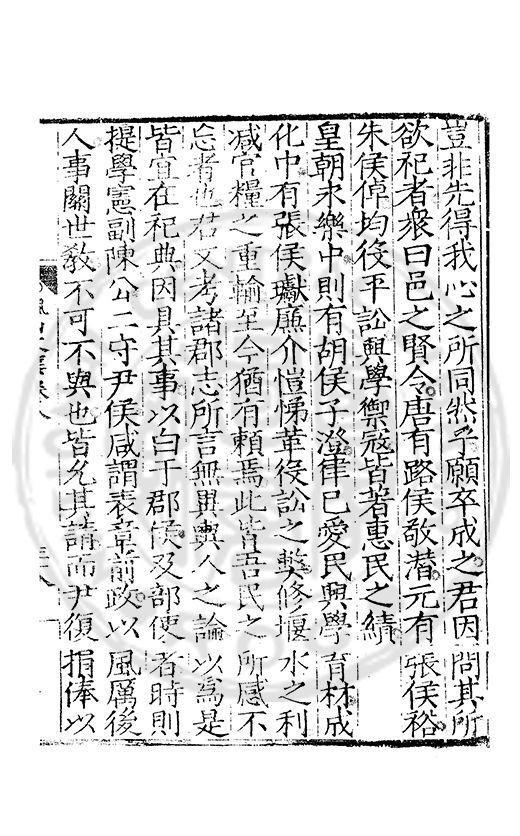 豈非先得我心之所同然乎願卒成之君因問其所
欲祀者衆曰邑之賢令唐有路侯敬潛元有張侯裕
朱侯倬均役平訟興學禦寇皆著惠民之績
皇朝永樂中則有胡侯子澄律已愛民興學育材成
化中有張侯瓛廉介愷悌革役訟之弊修堰水之利
减官糧之重輸至今猶有賴焉此皆吾民之所感不
忘者也君又考諸郡志所言無異輿人之論以為是
皆宜在祀典因具其事以白于郡侯及部使者時則
提學憲副陳公二守尹侯咸謂表章前政以風厲後
人事關世敎不可不與也皆允其請而尹復捐俸以
卷八